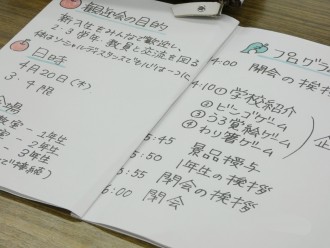 歓迎会の目的
新入生をみんなで歓迎し、
2・3学年、教員と交流を図る
体はソーシャルディスタンスでも心は一つに
日時
4月20日(木)
3・4限
会場
教室 - 1年生
室 - 2年生
- 3年生
プログラ
14:00 開会の挨拶
14:10 ① 学校紹介
② ビンゴゲーム
③ うろ覚え絵ゲーム
④ わり箸ゲーム
企
:45 景品授与
:50 1年生の挨拶
:55 閉会の挨拶
:00 閉会